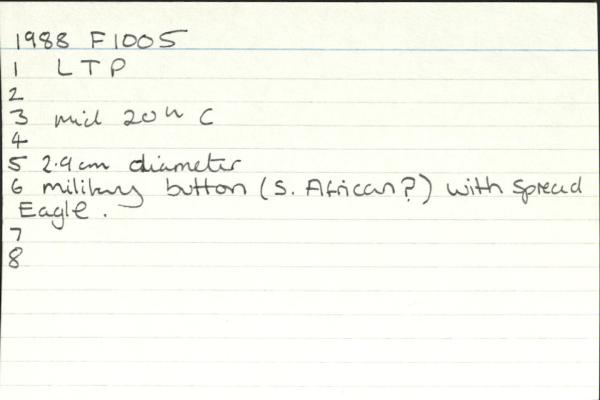 1988 F1005
1 LTP
2
3 mid 20th C
4
5 2.9cm diameter
6 military button (S. African?) with spread
Eagle.
7
8